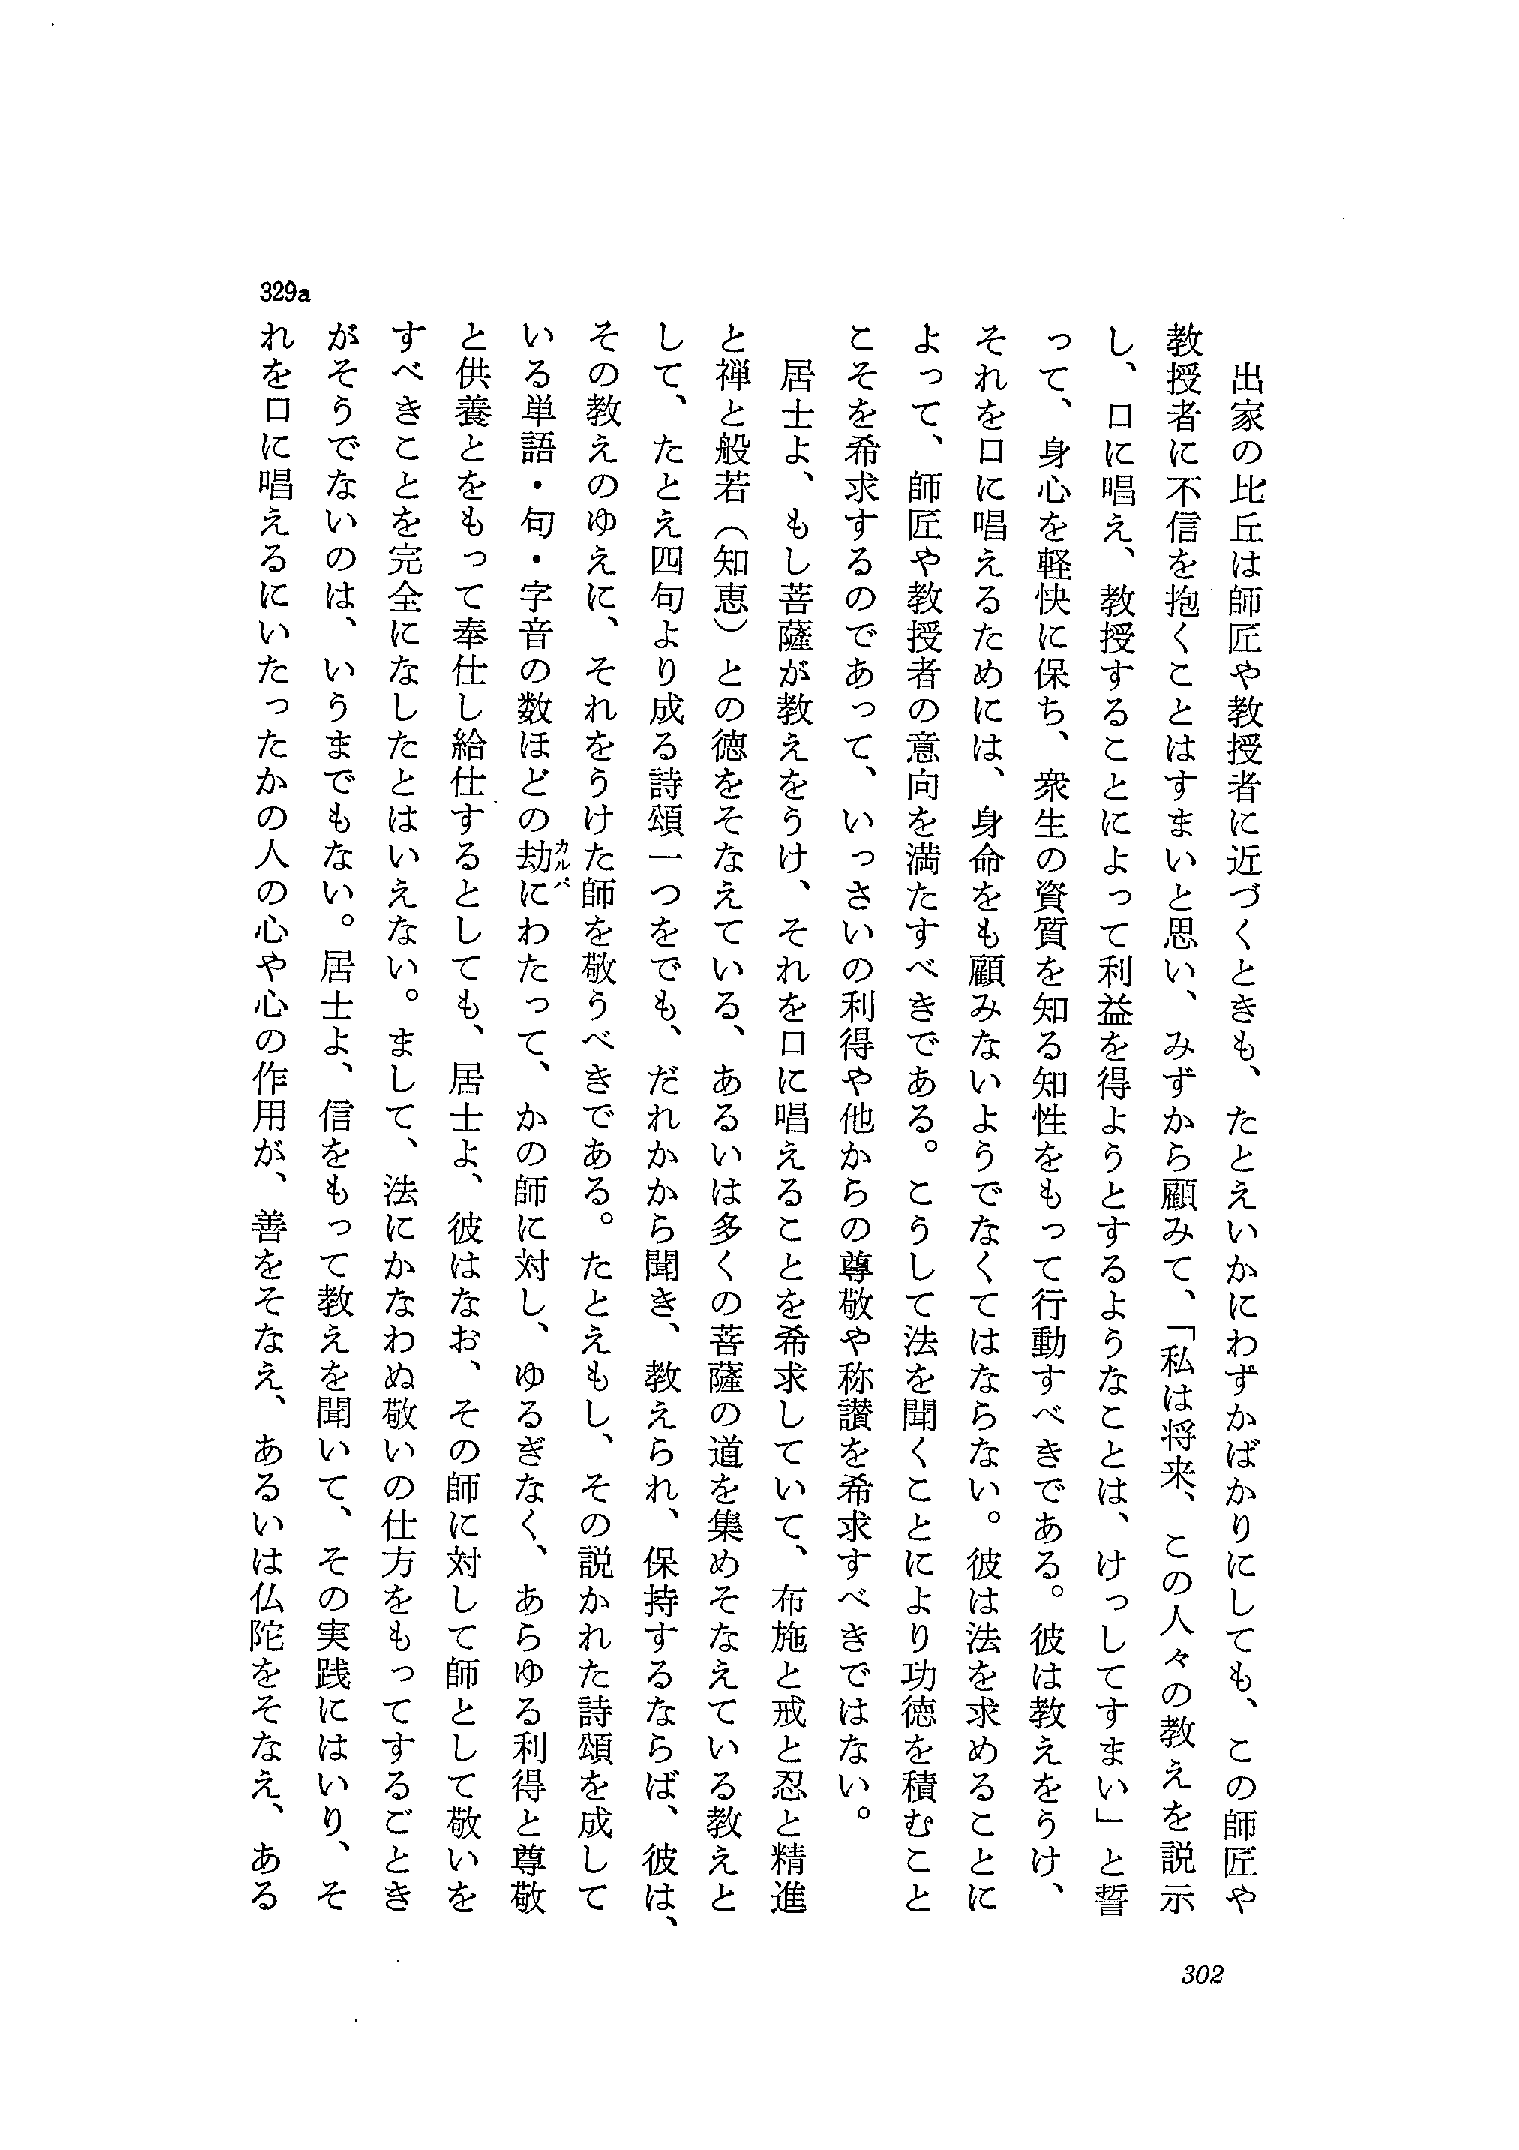 出家の比丘は師匠や教授者に近づくときも、たとえいかにわずかばかりにしても、この師匠や
教授者に不信を抱くことはすまいと思い、みずから顧みて、「私は将来、この人々の教えを説示
し、口に唱え、教授することによって利益を得ようとするようなことは、けっしてすまい」と誓
って、身心を軽快に保ち、衆生の資質を知る知性をもって行動すべきである。彼は教えをうけ、
それを口に唱えるためには、身命をも顧みないようでなくてはならない。彼は法を求めることに
よって、師匠や教授者の意向を満たすべきである。こうして法を聞くことにより功徳を積むこと
こそを希求するのであって、いっさいの利得や他からの尊敬や称讃を希求すべきではない。
居士よ、もし菩薩が教えをうけ、それを口に唱えることを希求していて、布施と戒と忍と精進
と禅と般若（知恵）との徳をそなえている、あるいは多くの菩薩の道を集めそなえている教えと
して、たとえ四句より成る詩頌一つをでも、だれかから聞き、教えられ、保持するならば、彼は、
その教えのゆえに、それをうけた師を敬うべきである。たとえもし、その説かれた詩頌を成して
いる単語・句・字音の数ほどの劫にわたって、かの師に対し、ゆるぎなく、あらゆる利得と尊敬
カルパ
と供養とをもって奉仕し給仕するとしても、居士よ、彼はなお、その師に対して師として敬いを
すべきことを完全になしたとはいえない。まして、法にかなわぬ敬いの仕方をもってするごとき
がそうでないのは、いうまでもない。居士よ、信をもって教えを聞いて、その実践にはいり、そ
329a
れを口に唱えるにいたったかの人の心や心の作用が、善をそなえ、あるいは仏陀をそなえ、ある
302